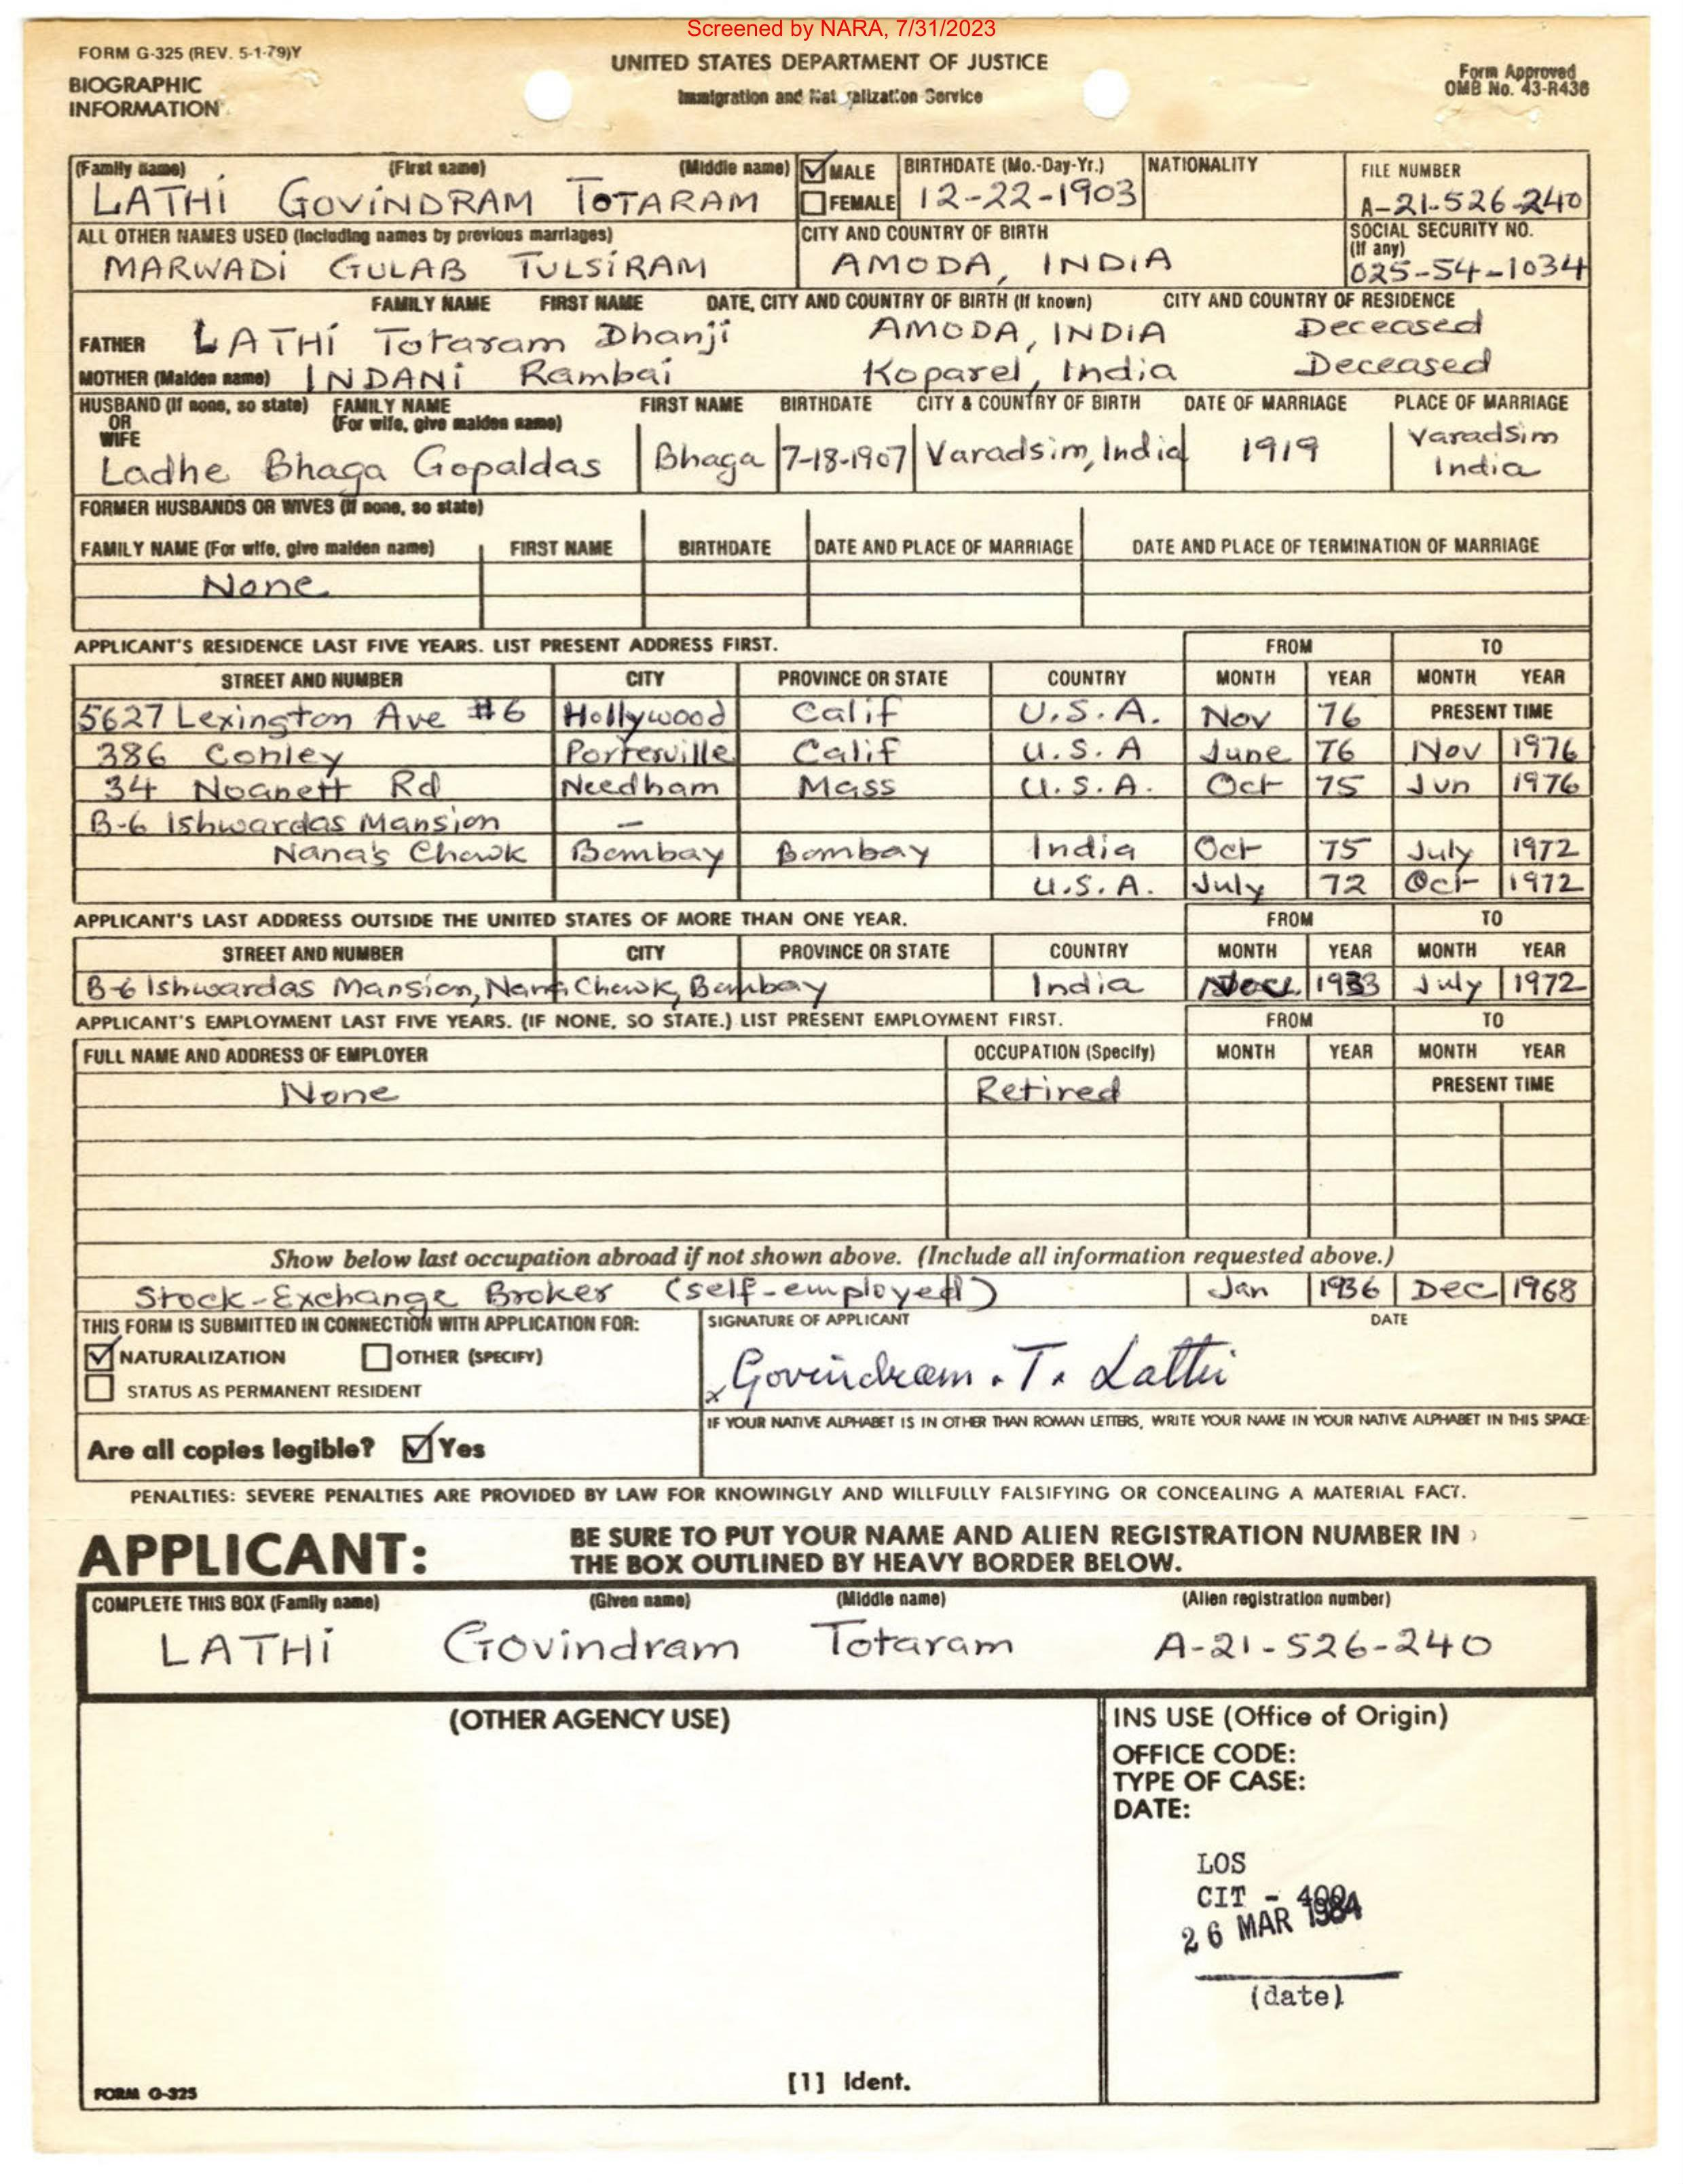 Screened by NARA, 7/31/2023
FORM G-325 (REV. 5-1-79)Y
BIOGRAPHIC
INFORMATION
UNITED STATES DEPARTMENT OF JUSTICE
Immigration and Naturalization Service
Form Approved
OMB No. 43-R436
(Family name) (First name) (Middle name) MALE BIRTHDATE (Mo.-Day-Yr.) NATIONALITY FILE NUMBER
LATHI GOVINDRAM TOTARAM FEMALE 12-22-1903 A-21-526-240
ALL OTHER NAMES USED (Including names by previous marriages) CITY AND COUNTRY OF BIRTH SOCIAL SECURITY NO. (If any)
MARWADI GULAB TULSIRAM AMODA, INDIA 025-54-1034
FAMILY NAME FIRST NAME DATE, CITY AND COUNTRY OF BIRTH (If known) CITY AND COUNTRY OF RESIDENCE
FATHER LATHI Totaram Dhanji AMODA, INDIA Deceased
MOTHER (Maiden name) INDANI Rambai Koparel, India Deceased
HUSBAND (If none, so state) OR WIFE FAMILY NAME (For wife, give maiden name) FIRST NAME BIRTHDATE CITY & COUNTRY OF BIRTH DATE OF MARRIAGE PLACE OF MARRIAGE
Ladhe Bhaga Gopaldas Bhaga 7-18-1907 Varadsim, India 1919 Varadsim India
FORMER HUSBANDS OR WIVES (If none, so state)
FAMILY NAME (For wife, give maiden name) FIRST NAME BIRTHDATE DATE AND PLACE OF MARRIAGE DATE AND PLACE OF TERMINATION OF MARRIAGE
None
APPLICANT'S RESIDENCE LAST FIVE YEARS. LIST PRESENT ADDRESS FIRST. FROM TO
STREET AND NUMBER CITY PROVINCE OR STATE COUNTRY MONTH YEAR MONTH YEAR
5627 Lexington Ave #6 Hollywood Calif U.S.A. Nov 76 PRESENT TIME
386 Conley Porterville Calif U.S.A June 76 Nov 1976
34 Noanett Rd Needham Mass U.S.A. Oct 75 Jun 1976
B-6 Ishwardas Mansion –
Nana's Chowk Bombay Bombay India Oct 75 July 1972
U.S.A. July 72 Oct 1972
APPLICANT'S LAST ADDRESS OUTSIDE THE UNITED STATES OF MORE THAN ONE YEAR. FROM TO
STREET AND NUMBER CITY PROVINCE OR STATE COUNTRY MONTH YEAR MONTH YEAR
B-6 Ishwardas Mansion, Nana Chowk, Bombay India 1933 July 1972
APPLICANT'S EMPLOYMENT LAST FIVE YEARS. (IF NONE, SO STATE.) LIST PRESENT EMPLOYMENT FIRST. FROM TO
FULL NAME AND ADDRESS OF EMPLOYER OCCUPATION (Specify) MONTH YEAR MONTH YEAR
None Retired PRESENT TIME
Show below last occupation abroad if not shown above. (Include all information requested above.)
Stock-Exchange Broker (self-employed) Jan 1936 Dec 1968
THIS FORM IS SUBMITTED IN CONNECTION WITH APPLICATION FOR: SIGNATURE OF APPLICANT DATE
NATURALIZATION OTHER (SPECIFY)
STATUS AS PERMANENT RESIDENT
x Govindram . T. Lathi
IF YOUR NATIVE ALPHABET IS IN OTHER THAN ROMAN LETTERS, WRITE YOUR NAME IN YOUR NATIVE ALPHABET IN THIS SPACE:
Are all copies legible? Yes
PENALTIES: SEVERE PENALTIES ARE PROVIDED BY LAW FOR KNOWINGLY AND WILLFULLY FALSIFYING OR CONCEALING A MATERIAL FACT.
APPLICANT: BE SURE TO PUT YOUR NAME AND ALIEN REGISTRATION NUMBER IN
THE BOX OUTLINED BY HEAVY BORDER BELOW.
COMPLETE THIS BOX (Family name) (Given name) (Middle name) (Alien registration number)
LATHI Govindram Totaram A-21-526-240
(OTHER AGENCY USE)
INS USE (Office of Origin)
OFFICE CODE:
TYPE OF CASE:
DATE:
LOS
CIT - 400
26 MAR 1984
(date)
[1] Ident.
FORM G-325